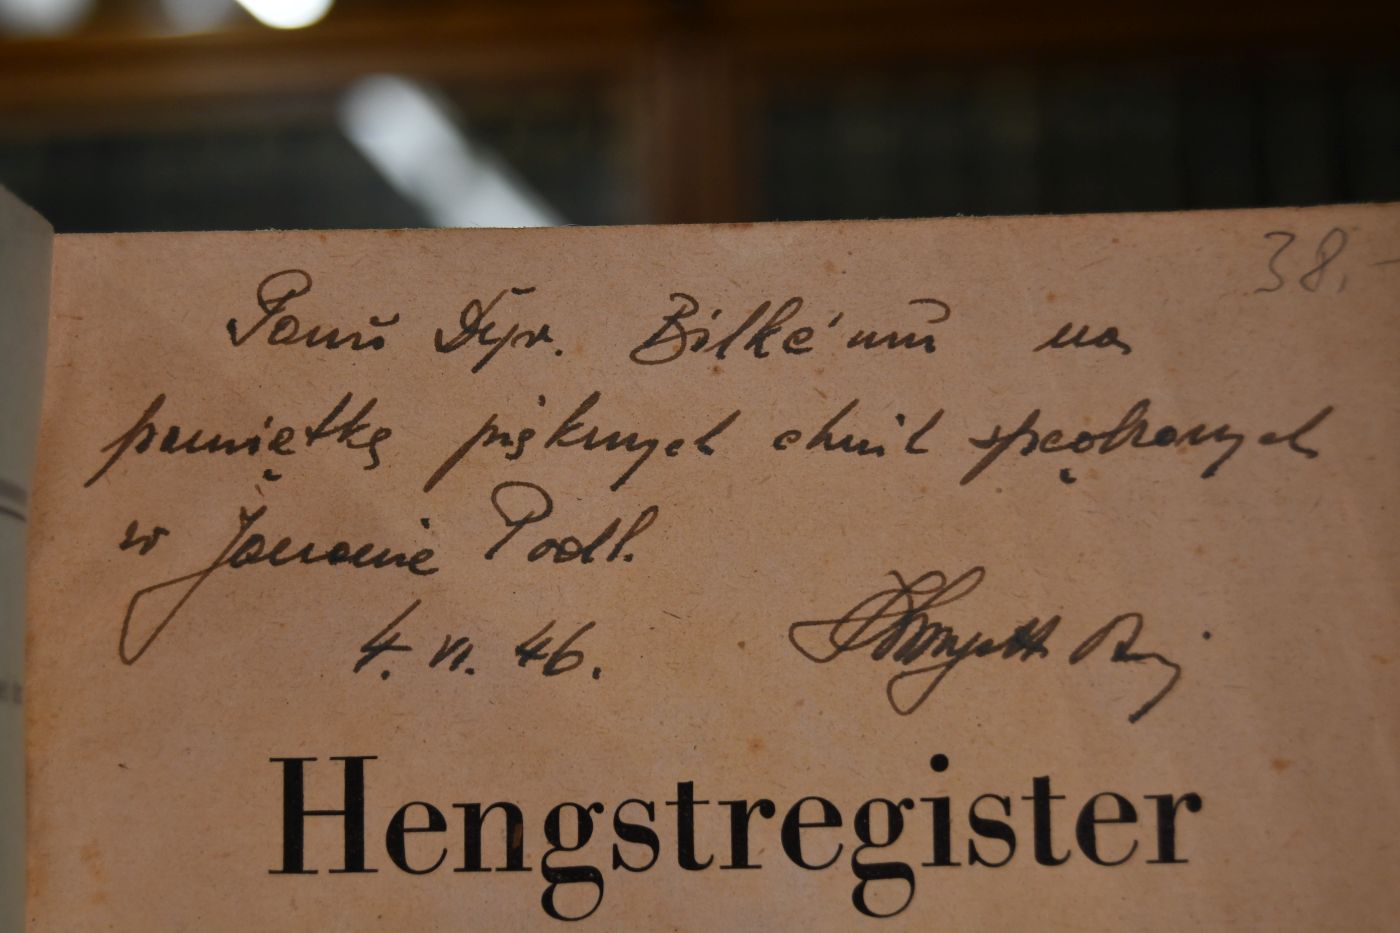 38.-
Panu Dyr. Bilke'mu na
pamiątkę pięknych chwil spędzonych
w Janowie Podl.
4. VI. 46.
Hengstregister